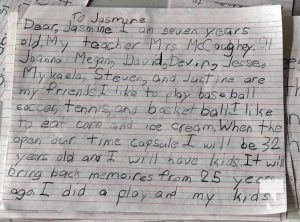 To Jasmine
Dear, Jasmine I am seven years
old. My teacher Mrs McCoughey.
Joanna Megan, David, Devin, Jessen,
Mykaela, Steven, and Justine are
my friends I like to play baseball
soccer, tennis, and basket ball I like
to eat corn and ice cream. When the
open our time capsule I will be 32
years old and I will have kids. It will
bring back memoires from 25 years
ago. I did a play and my kids